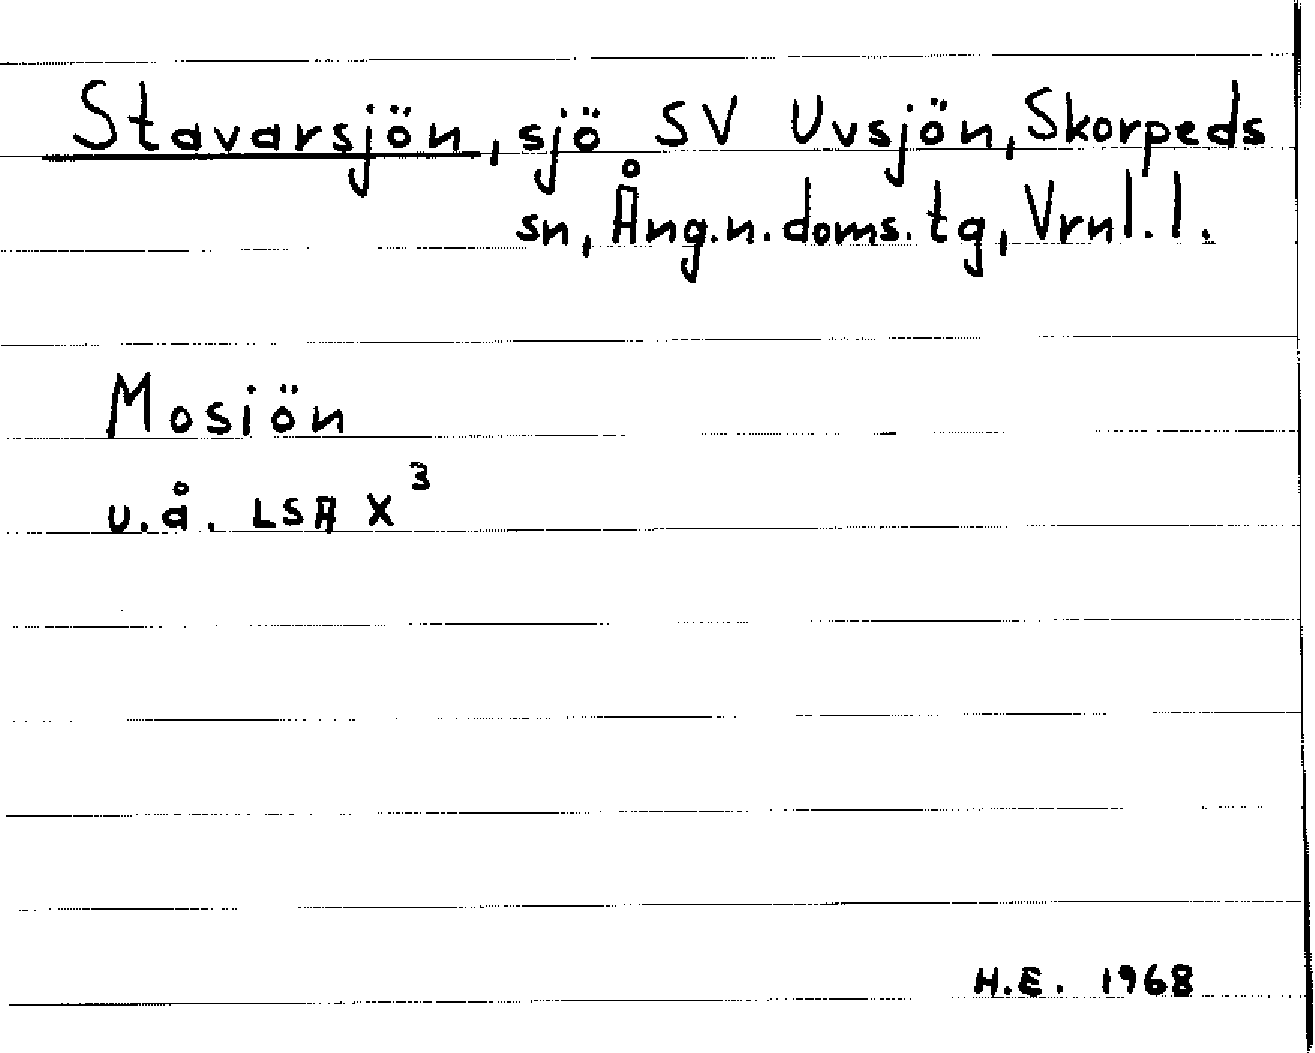 Stavarsjön, sjö SV Uvsjön, Skorpeds
sn, Ång.n.doms.tg, Vrnl.l.
Mosiön
u.å. LSA X³
H.E. 1968